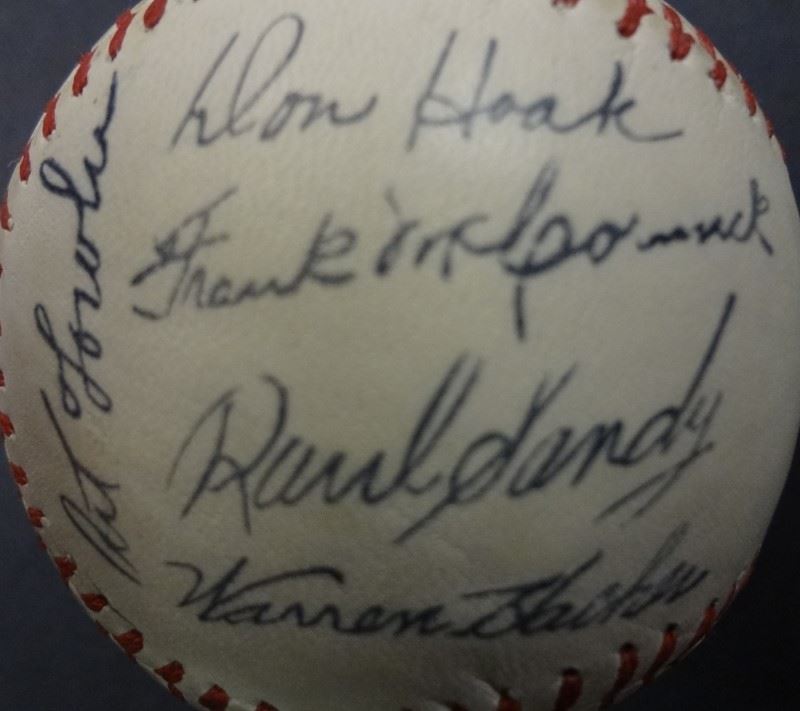 Don Hoak
Frank McCormick
Raul
Warren Hacker
Art Fowler